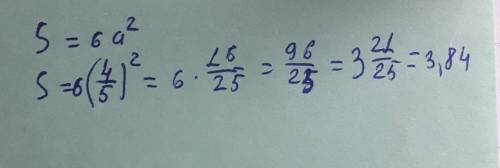 S = 6a²
S = 6(4/5)² = 6 · 16/25 = 96/25 = 3 21/25 = 3,84